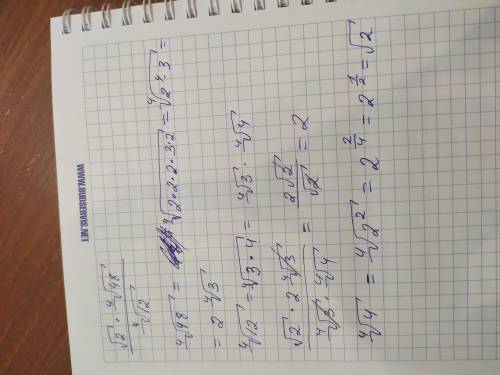 WWW.BUDSERVIS.NET
\frac{\sqrt{2} \cdot \sqrt[4]{48}}{\sqrt[4]{12}}
\sqrt[4]{48} = \sqrt[4]{2 \cdot 2 \cdot 2 \cdot 3 \cdot 2} = \sqrt[4]{2^4 \cdot 3} =
= 2 \sqrt[4]{3}
\sqrt[4]{12} = \sqrt[4]{3 \cdot 4} = \sqrt[4]{3} \cdot \sqrt[4]{4}
\frac{\sqrt{2} \cdot 2 \sqrt[4]{3}}{\sqrt[4]{3} \cdot \sqrt[4]{4}} = \frac{2\sqrt{2}}{\sqrt{2}} = 2
\sqrt[4]{4} = \sqrt[4]{2^2} = 2^{\frac{2}{4}} = 2^{\frac{1}{2}} = \sqrt{2}